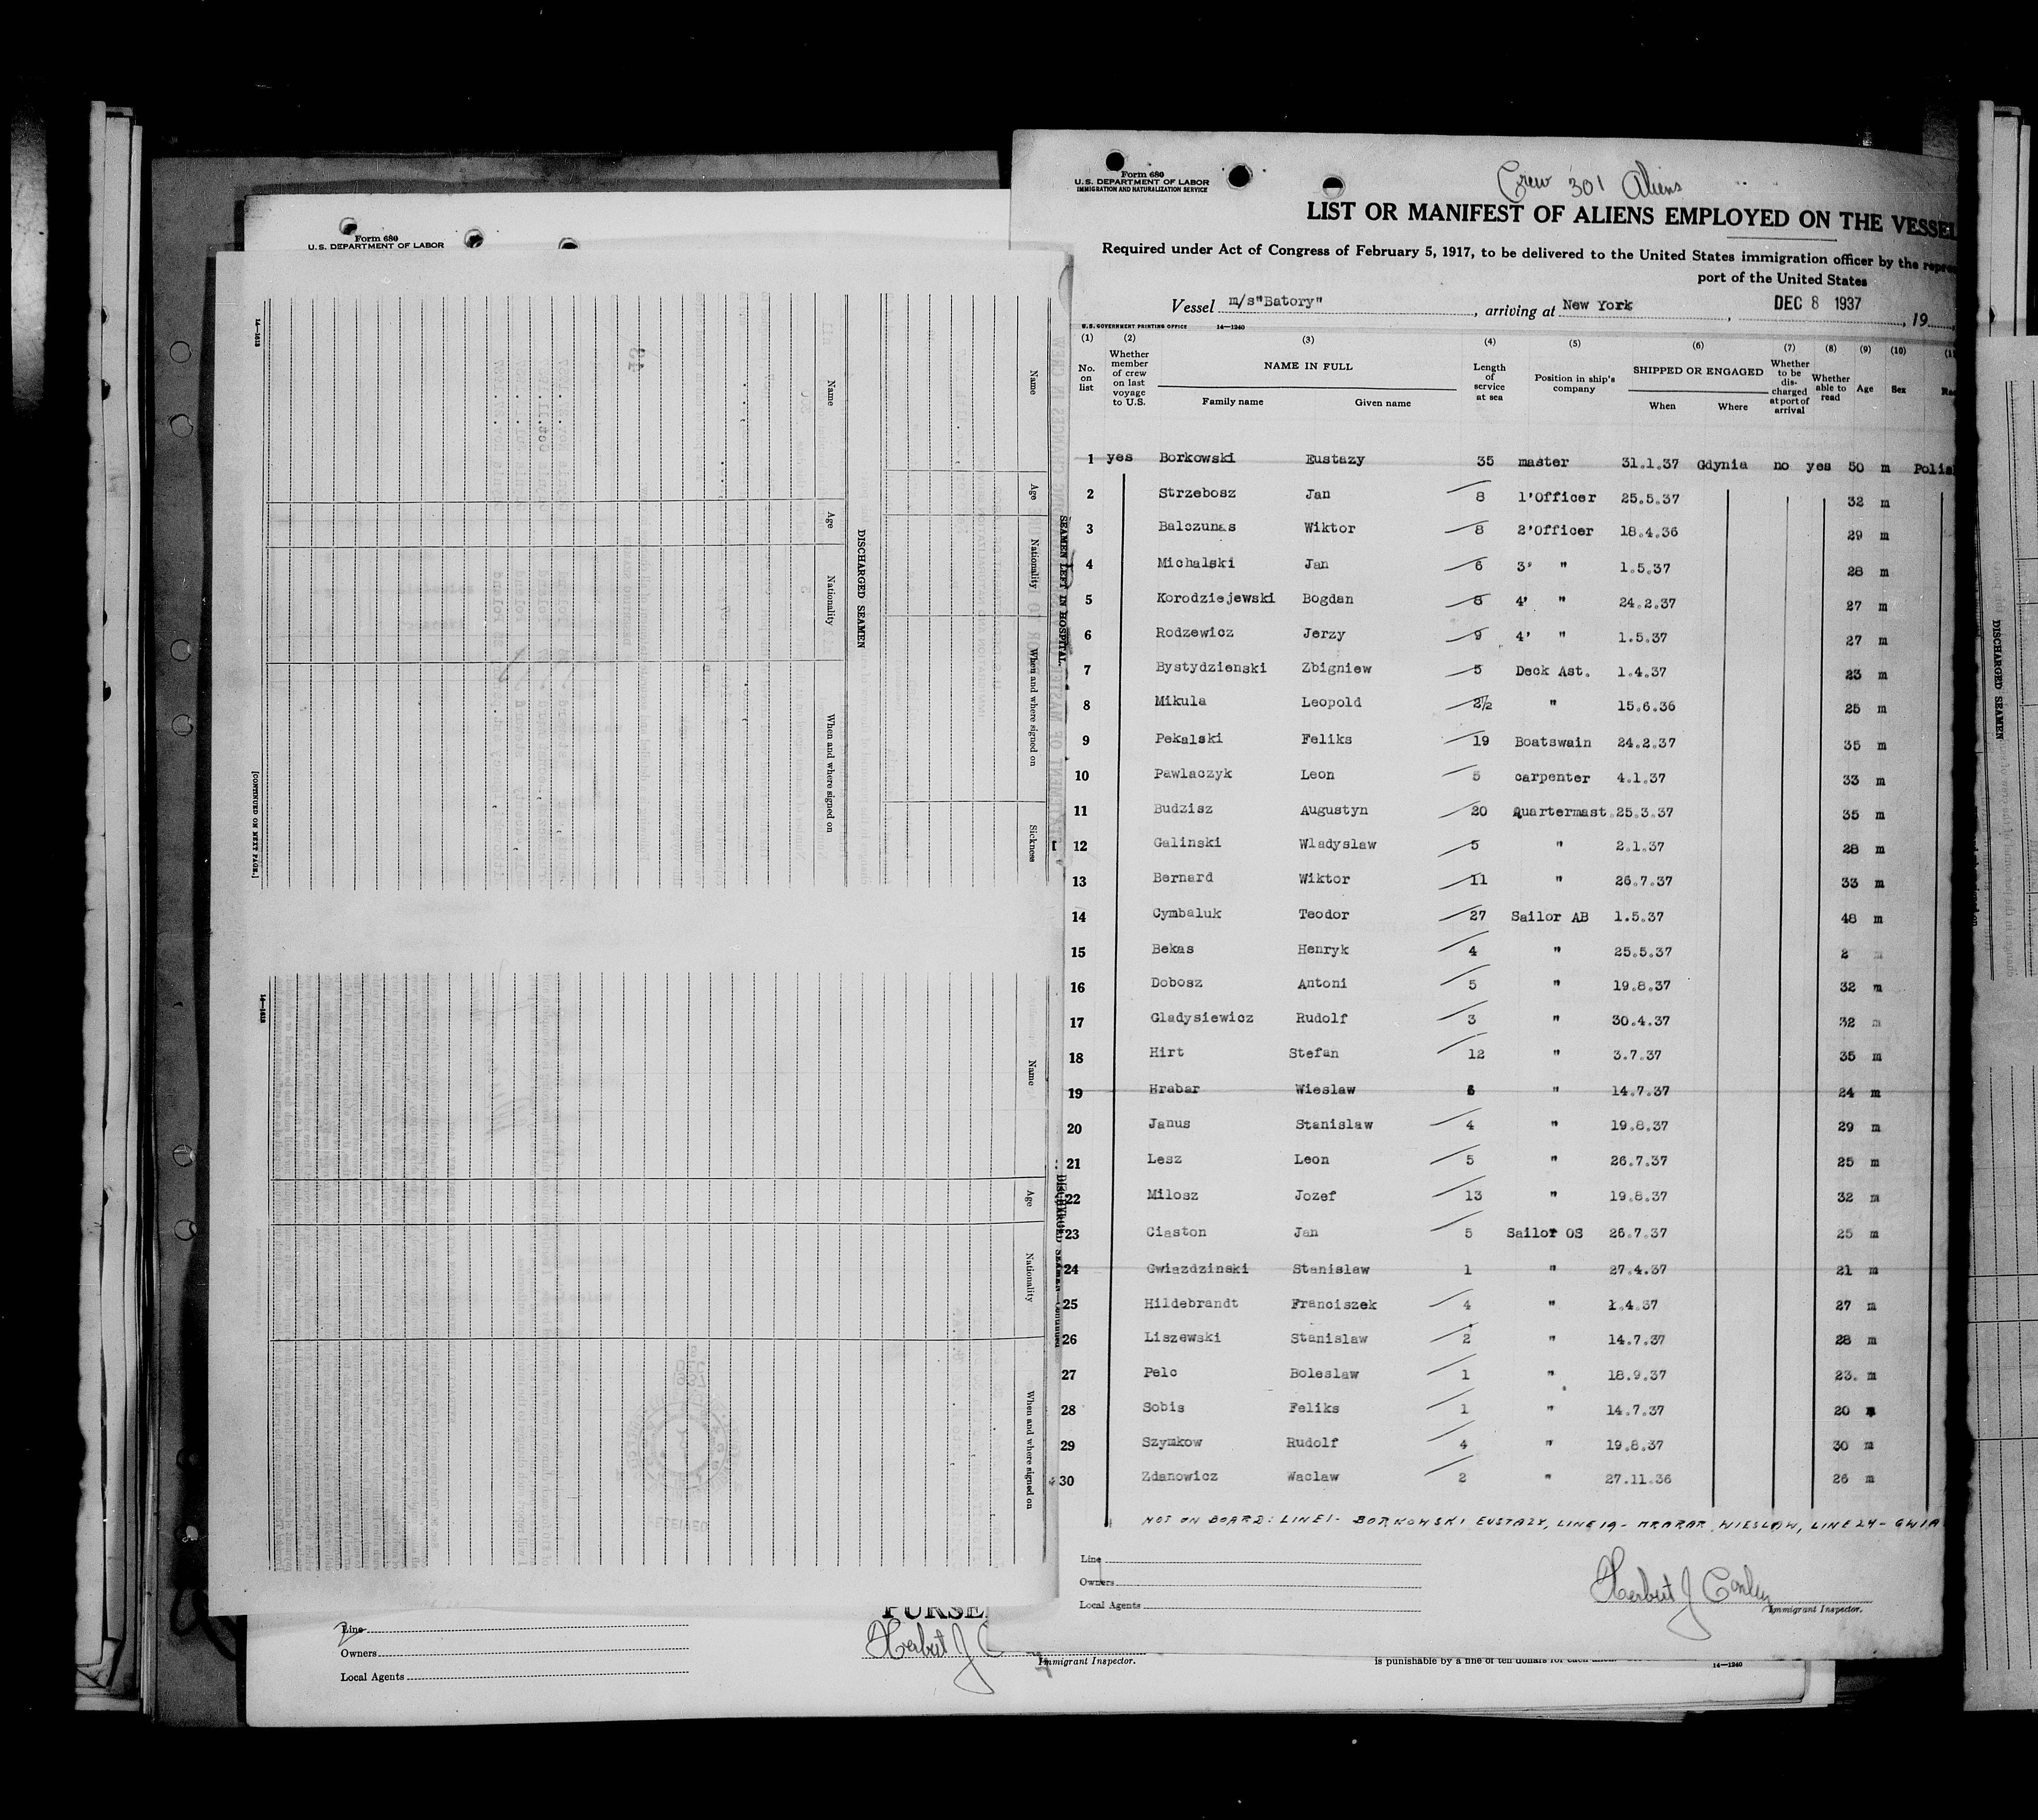 Form 680
U. S. DEPARTMENT OF LABOR
Name
Age
Nationality
When and where signed on
Sickness
SEAMEN LEFT IN HOSPITAL
DISCHARGED SEAMEN
Name
Age
Nationality
When and where signed on
[CONTINUED ON NEXT PAGE.]
14—1613
DISCHARGED SEAMEN—Continued
Name
Age
Nationality
When and where signed on
14—1613
PURSE
Line
Owners
Local Agents
Herbert J C
Immigrant Inspector.
is punishable by a fine of ten dollars for each
14—1240
Form 680
U. S. DEPARTMENT OF LABOR
IMMIGRATION AND NATURALIZATION SERVICE
Crew 301 Aliens
LIST OR MANIFEST OF ALIENS EMPLOYED ON THE VESSEL
Required under Act of Congress of February 5, 1917, to be delivered to the United States immigration officer by the repre
port of the United States
Vessel m/s"Batory", arriving at New York, DEC 8 1937, 19
U. S. GOVERNMENT PRINTING OFFICE 14—1240
(1) (2) (3) (4) (5) (6) (7) (8) (9) (10) (11
No. on list Whether member of crew on last voyage to U.S. NAME IN FULL Family name Given name Length of service at sea Position in ship's company SHIPPED OR ENGAGED When Where Whether to be discharged at port of arrival Whether able to read Age Sex Rac
1 yes Borkowski Eustazy 35 master 31.1.37 Gdynia no yes 50 m Polis
2 Strzebosz Jan 8 1'Officer 25.5.37 32 m
3 Balczunas Wiktor 8 2'Officer 18.4.36 29 m
4 Michalski Jan 6 3' " 1.5.37 28 m
5 Korodziejewski Bogdan 8 4' " 24.2.37 27 m
6 Rodzewicz Jerzy 9 4' " 1.5.37 27 m
7 Bystydzienski Zbigniew 5 Deck Ast. 1.4.37 23 m
8 Mikula Leopold 2½ " 15.6.36 25 m
9 Pekalski Feliks 19 Boatswain 24.2.37 35 m
10 Pawlaczyk Leon 5 carpenter 4.1.37 33 m
11 Budzisz Augustyn 20 Quartermast.25.3.37 35 m
12 Galinski Wladyslaw 5 " 2.1.37 28 m
13 Bernard Wiktor 11 " 26.7.37 33 m
14 Cymbaluk Teodor 27 Sailor AB 1.5.37 48 m
15 Bekas Henryk 4 " 25.5.37 2 m
16 Dobosz Antoni 5 " 19.8.37 32 m
17 Gladysiewicz Rudolf 3 " 30.4.37 32 m
18 Hirt Stefan 12 " 3.7.37 35 m
19 Hrabar Wieslaw 6 " 14.7.37 24 m
20 Janus Stanislaw 4 " 19.8.37 29 m
21 Lesz Leon 5 " 26.7.37 25 m
22 Milosz Jozef 13 " 19.8.37 32 m
23 Ciaston Jan 5 Sailor OS 26.7.37 25 m
24 Gwiazdzinski Stanislaw 1 " 27.4.37 21 m
25 Hildebrandt Franciszek 4 " 1.4.37 27 m
26 Liszewski Stanislaw 2 " 14.7.37 28 m
27 Pelc Boleslaw 1 " 18.9.37 23. m
28 Sobis Feliks 1 " 14.7.37 20 m
29 Szymkow Rudolf 4 " 19.8.37 30 m
30 Zdanowicz Waclaw 2 " 27.11.36 26 m
NOT ON BOARD: LINE 1- BORKOWSKI EUSTAZY, LINE 19- HRABAR WIESLAW, LINE 24- GWIA
Line
Owners
Local Agents
Herbert J Conley
Immigrant Inspector.
DISCHARGED SEAMEN